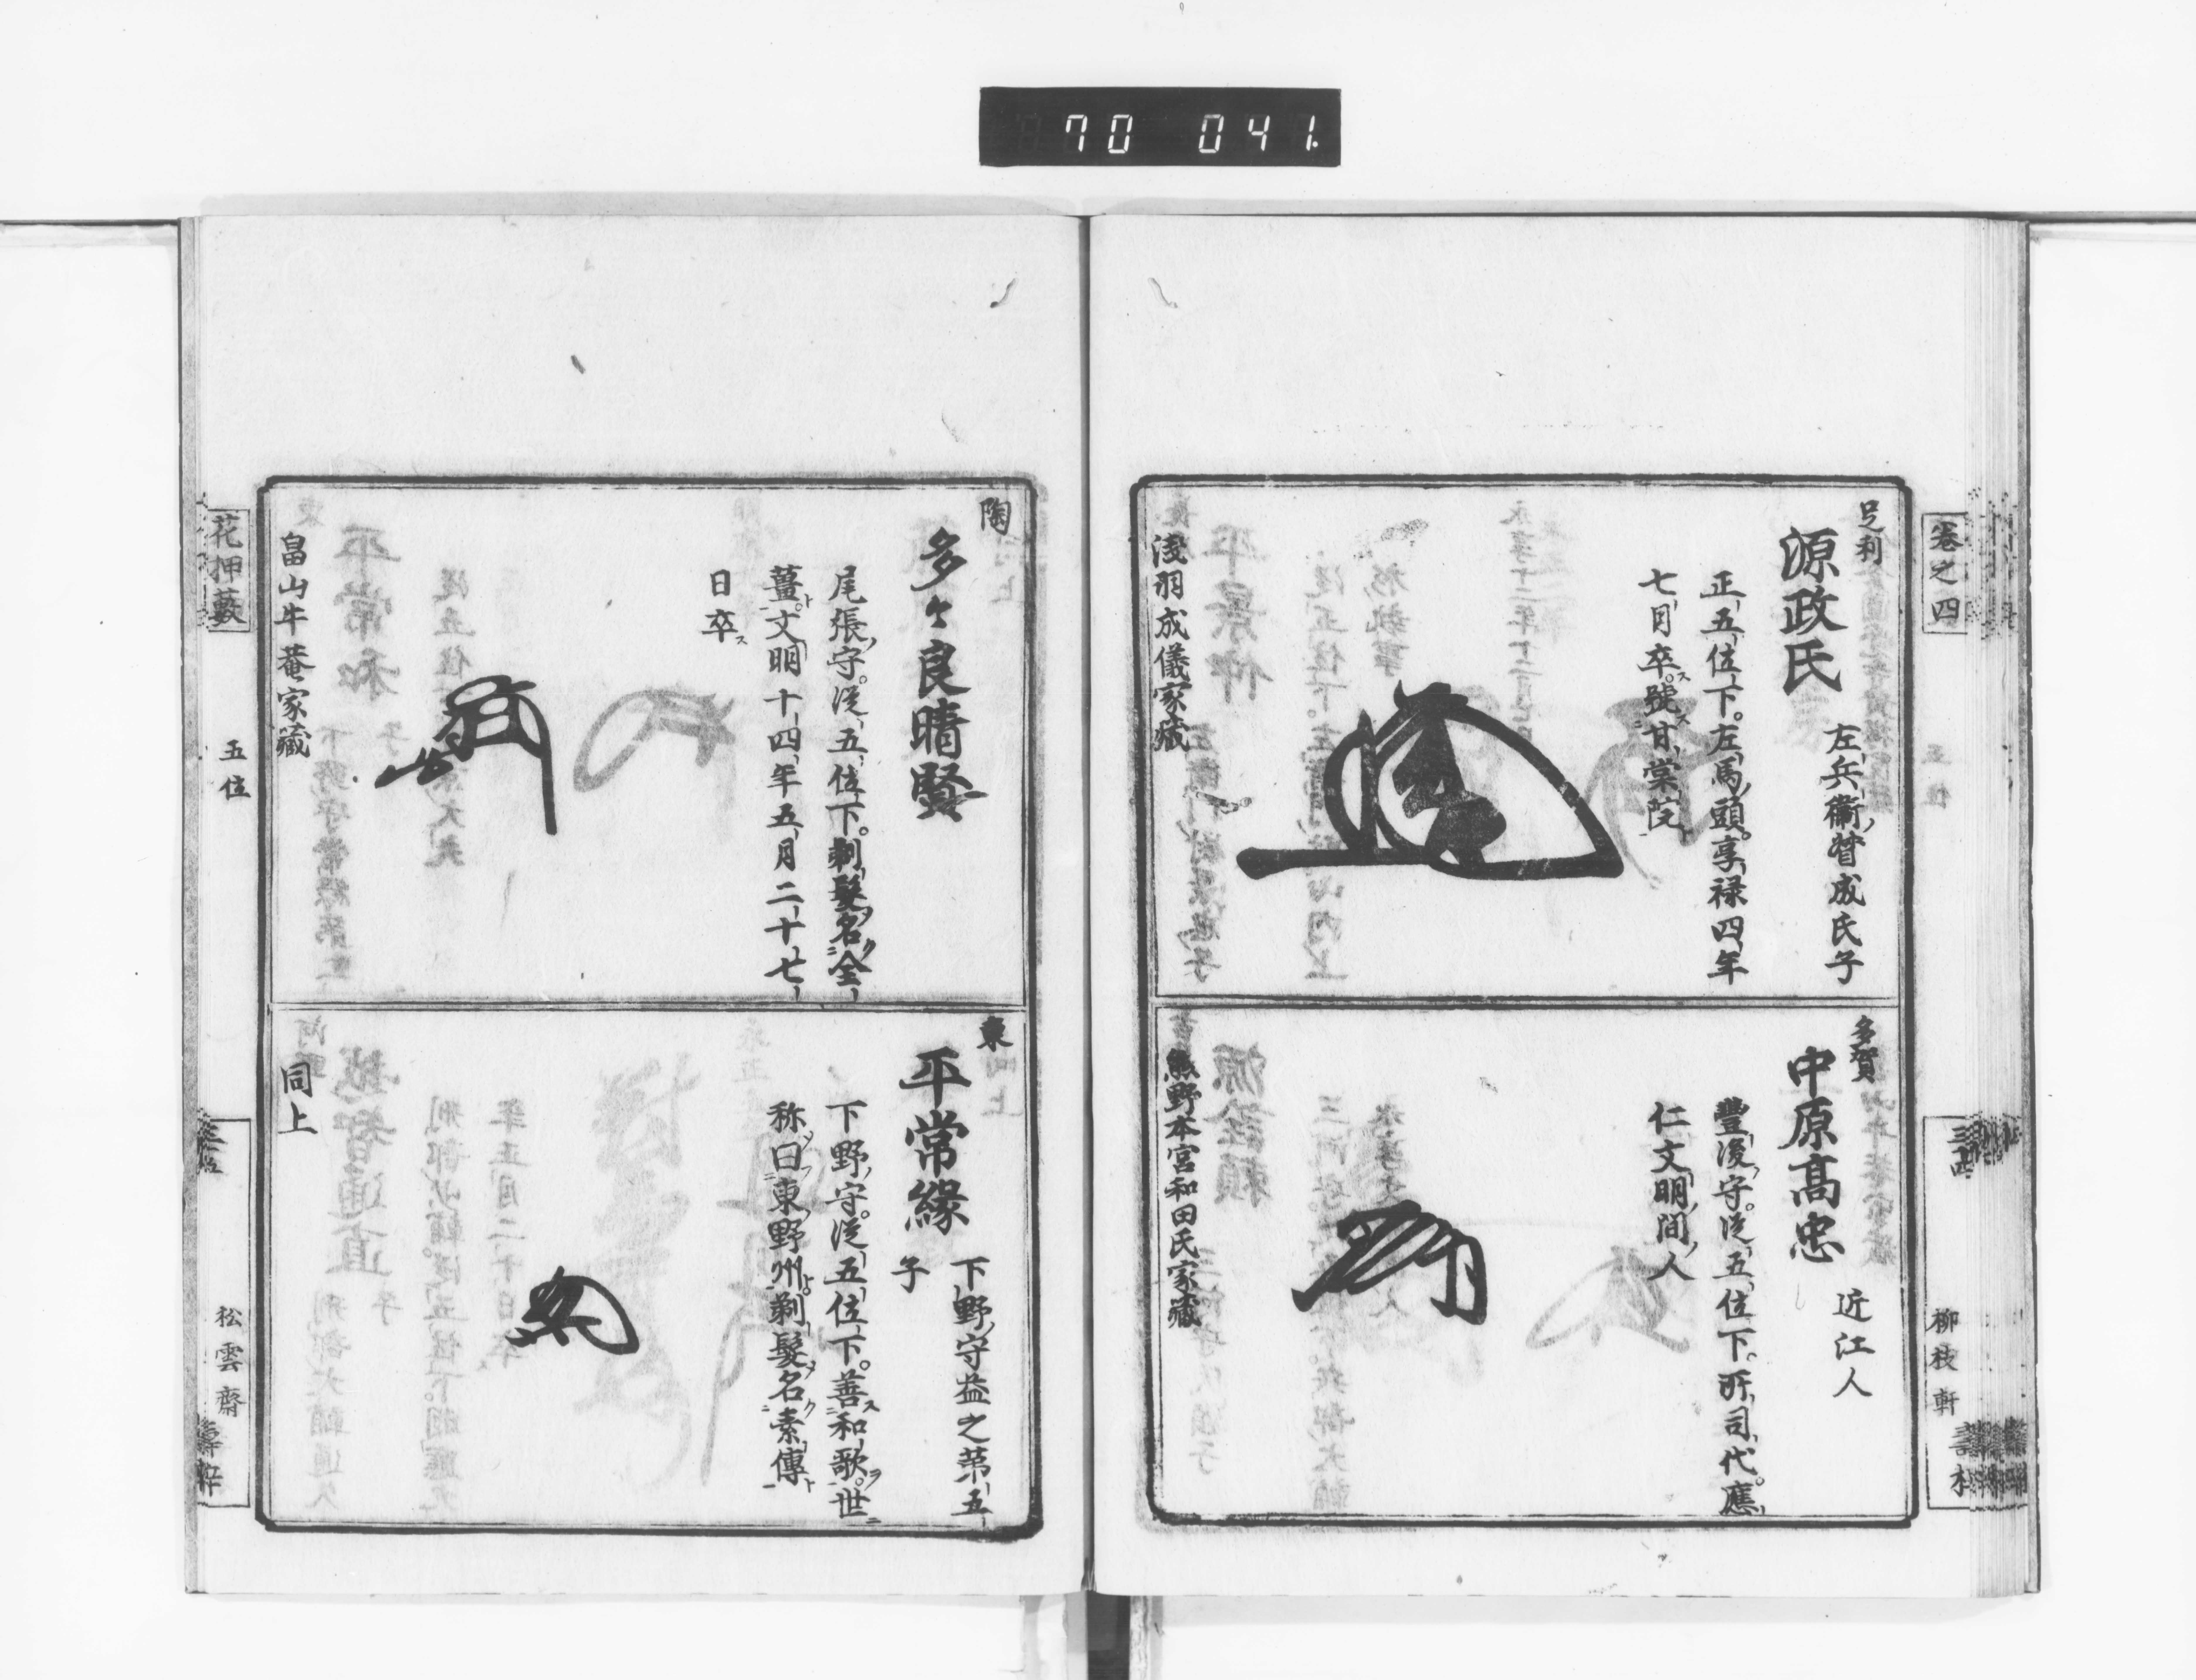 70 041.
卷之四
三四
柳枝軒
足利
源政氏
左兵衞督成氏子
正五位下。左馬頭。享禄四年
七月卒。號甘棠院
淺羽成儀家藏
多賀
中原高忠
近江人
豐後守。從五位下。所司代。應
仁文明間人
熊野本宮和田氏家藏
陶
多々良晴賢
尾張守。從五位下。剃髮名全
薑。文明十四年五月二十七
日卒ス
畠山牛菴家藏
東
平常緣
下野守益之第五
子
下野守。從五位下。善和歌。世
称曰東野州。剃髮名素傳
同上
花押藪
五位
松雲齋